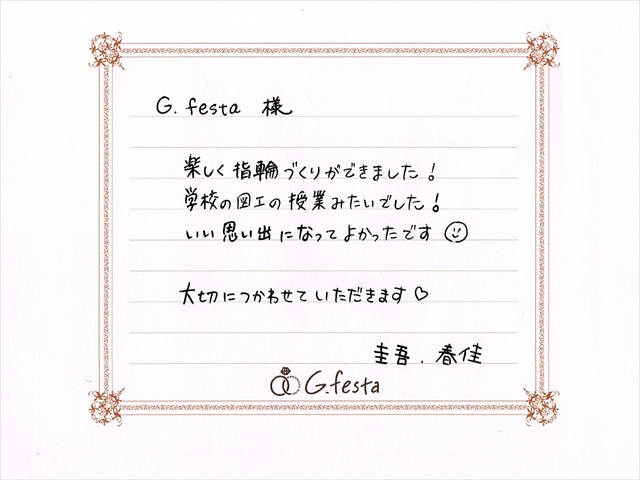 G. festa 様
楽しく指輪づくりができました!
学校の図工の授業みたいでした!
いい思い出になってよかったです☺
大切につかわせていただきます♡
圭吾. 春佳
G.festa